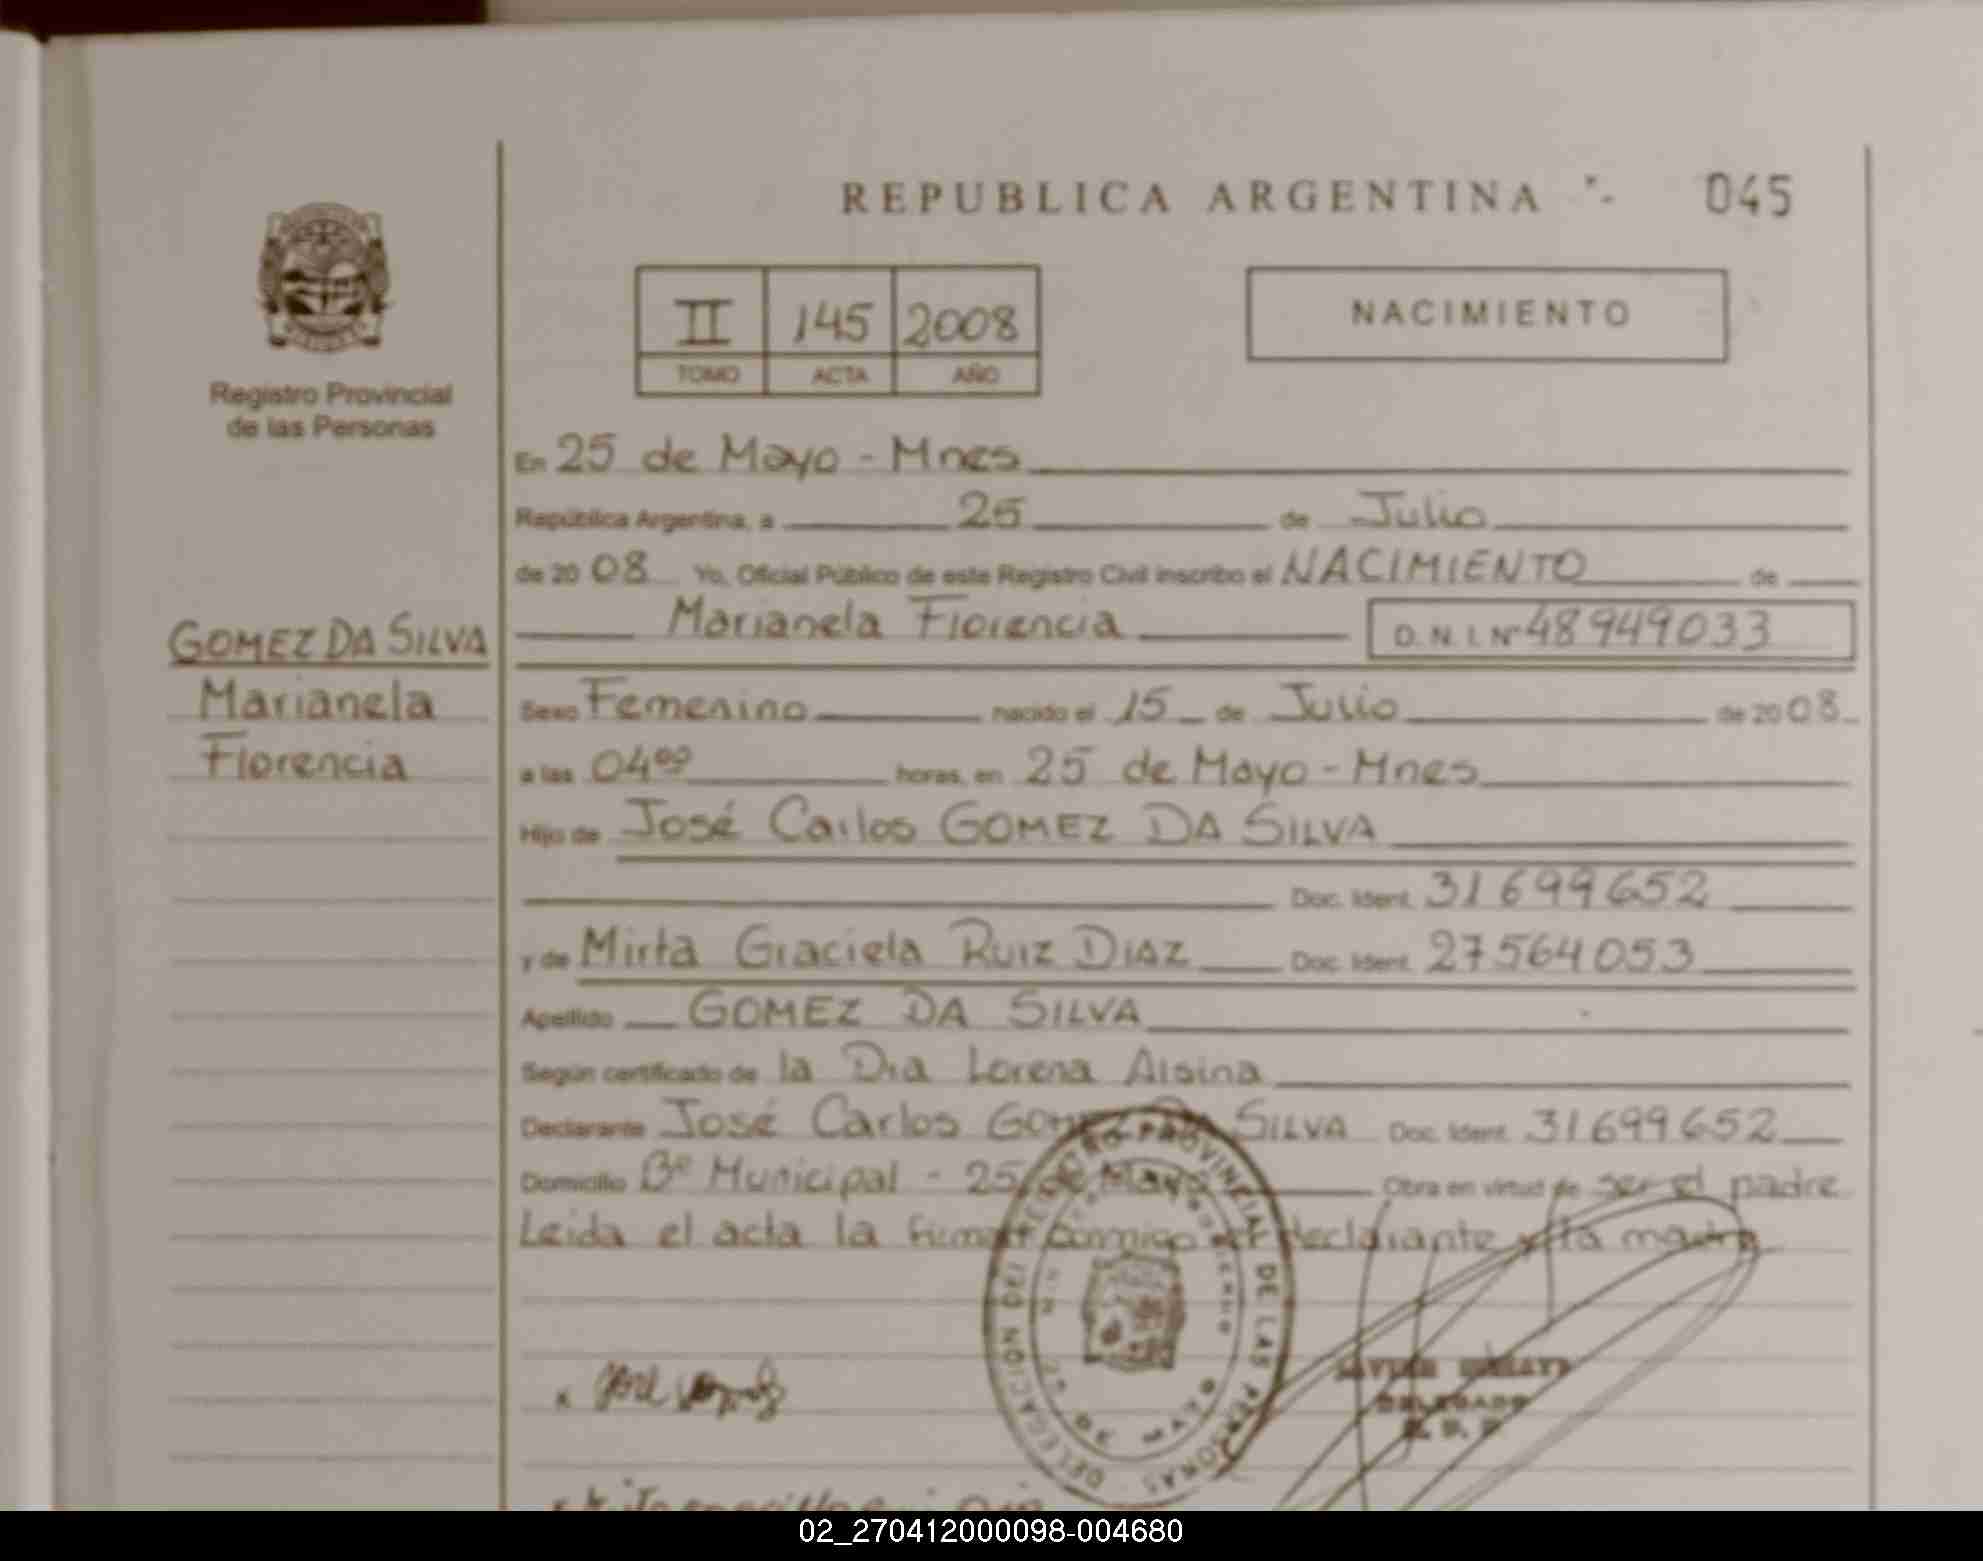 REPUBLICA ARGENTINA
045
II 145 2008
TOMO ACTA AÑO
NACIMIENTO
Registro Provincial
de las Personas
En 25 de Mayo - Mnes
República Argentina, a 25 de Julio
de 2008 Yo, Oficial Público de este Registro Civil inscribo el NACIMIENTO de
Marianela Florencia D.N.I. Nº 48949033
GOMEZ DA SILVA
Marianela
Florencia
Sexo Femenino nacido el 15 de Julio de 2008
a las 04⁰⁰ horas, en 25 de Mayo - Mnes
Hijo de José Carlos GOMEZ DA SILVA
Doc. Ident. 31699652
y de Mirta Graciela RUIZ DIAZ Doc. Ident. 27564053
Apellido GOMEZ DA SILVA
Según certificado de la Dra Lorena Alsina
Declarante José Carlos GOMEZ DA SILVA Doc. Ident. 31699652
Domicilio Bº Municipal - 25 de Mayo Obra en virtud de ser el padre
Leida el acta la firman conmigo el declarante y la madre
DELEGACION DEL REGISTRO PROVINCIAL DE LAS PERSONAS
25 DE MAYO
DELEGADO
02_270412000098-004680